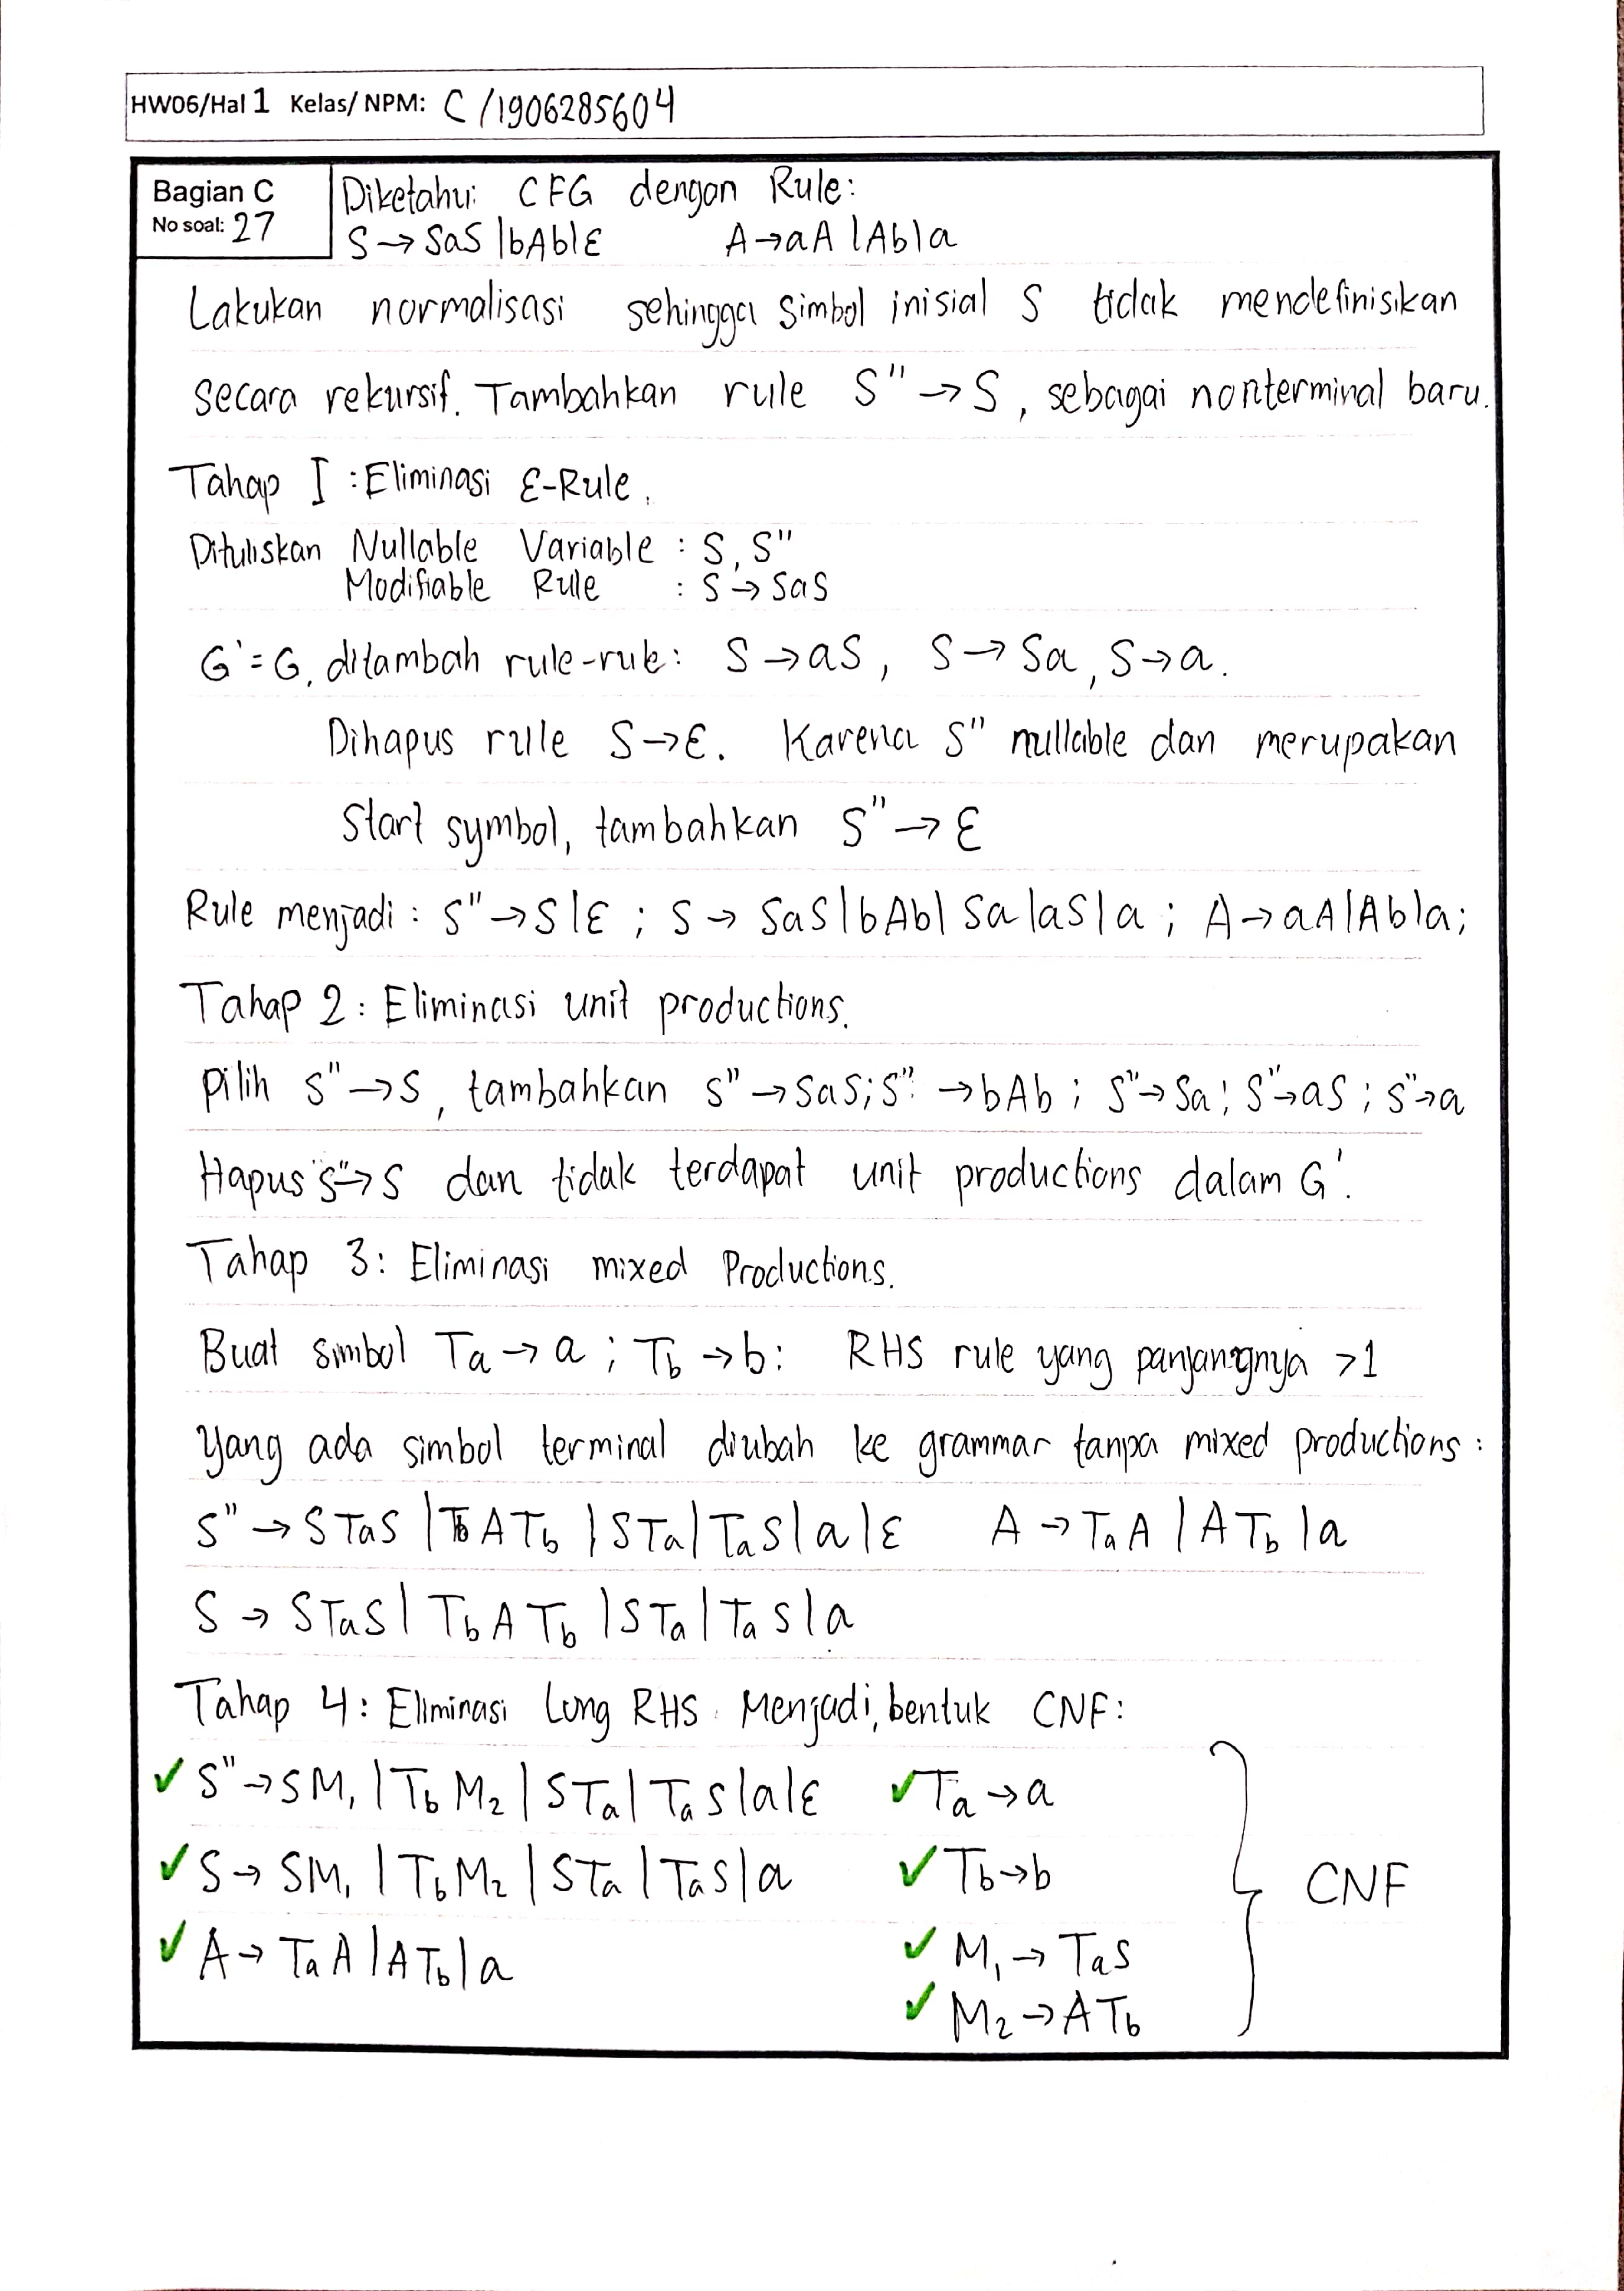 HW06/Hal 1 Kelas/ NPM: C /1906285604
Bagian C
No soal: 27
Diketahui: CFG dengan Rule:
S → SaS |bAb|ε A → aA |Ab|a
Lakukan normalisasi sehingga simbol inisial S tidak mendefinisikan
secara rekursif. Tambahkan rule S" → S, sebagai nonterminal baru.
Tahap I : Eliminasi ε-Rule.
Dituliskan Nullable Variable : S, S"
Modifiable Rule : S → SaS
G' = G, ditambah rule-rule: S → aS, S → Sa, S → a.
Dihapus rule S → ε. Karena S" nullable dan merupakan
Start symbol, tambahkan S" → ε
Rule menjadi : S" → S|ε ; S → SaS|bAb|Sa|aS|a ; A → aA|Ab|a;
Tahap 2 : Eliminasi unit productions.
Pilih S" → S, tambahkan S" → SaS; S" → bAb ; S" → Sa ; S" → aS ; S" → a
Hapus S" → S dan tidak terdapat unit productions dalam G'.
Tahap 3 : Eliminasi mixed Productions.
Buat simbol Ta → a ; Tb → b : RHS rule yang panjangnya >1
yang ada simbol terminal diubah ke grammar tanpa mixed productions :
S" → STaS |TbATb |STa|TaS|a|ε A → TaA | ATb |a
S → STaS | TbATb |STa|TaS|a
Tahap 4 : Eliminasi Long RHS. Menjadi, bentuk CNF :
✓ S" → SM₁ |TbM₂ | STa| TaS|a|ε ✓ Ta → a
✓ S → SM₁ |TbM₂ |STa |TaS|a ✓ Tb → b
CNF
✓ A → TaA |ATb|a ✓ M₁ → TaS
✓ M₂ → ATb